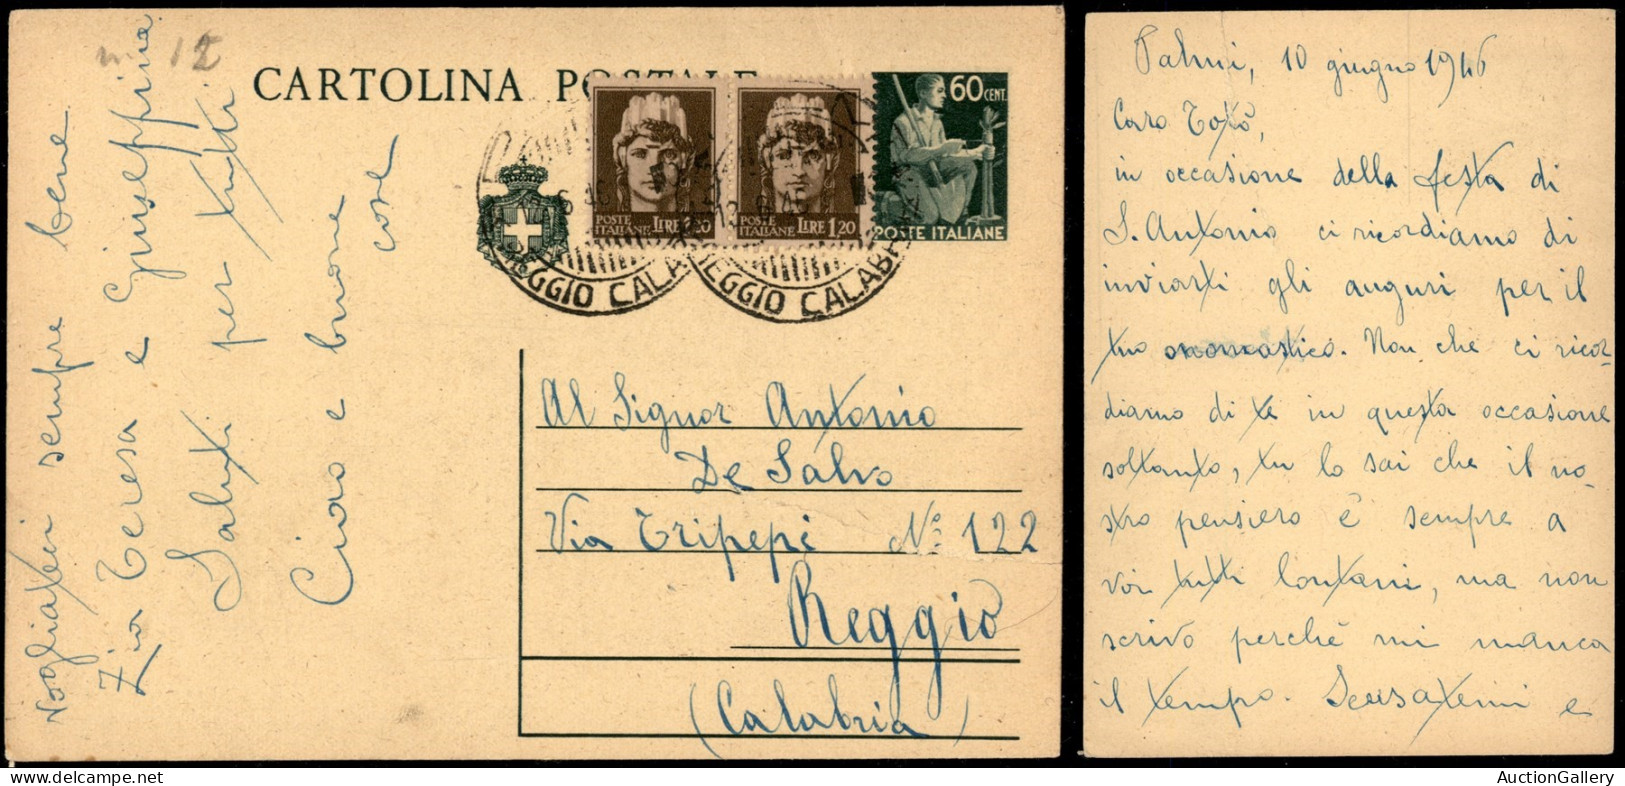 m 12
CARTOLINA POSTALE
60 CENT.
POSTE ITALIANE LIRE 1,20
POSTE ITALIANE LIRE 1,20
POSTE ITALIANE
REGGIO CALAB
REGGIO CALABR
Al Signor Antonio
De Salvo
Via Tripepi N° 122
Reggio
(Calabria)
vogliateci sempre bene
Zia Teresa e Giuseppina
Saluti per tutti
Ciao e buone
cose
Palmi, 10 giugno 1946
Caro Totò,
in occasione della festa di
S. Antonio ci ricordiamo di
inviarti gli auguri per il
tuo onomastico. Non che ci ricor-
diamo di te in questa occasione
soltanto, tu lo sai che il no-
stro pensiero è sempre a
voi tutti lontani, ma non
scrivo perchè mi manca
il tempo. Scusatemi e
AuctionGallery